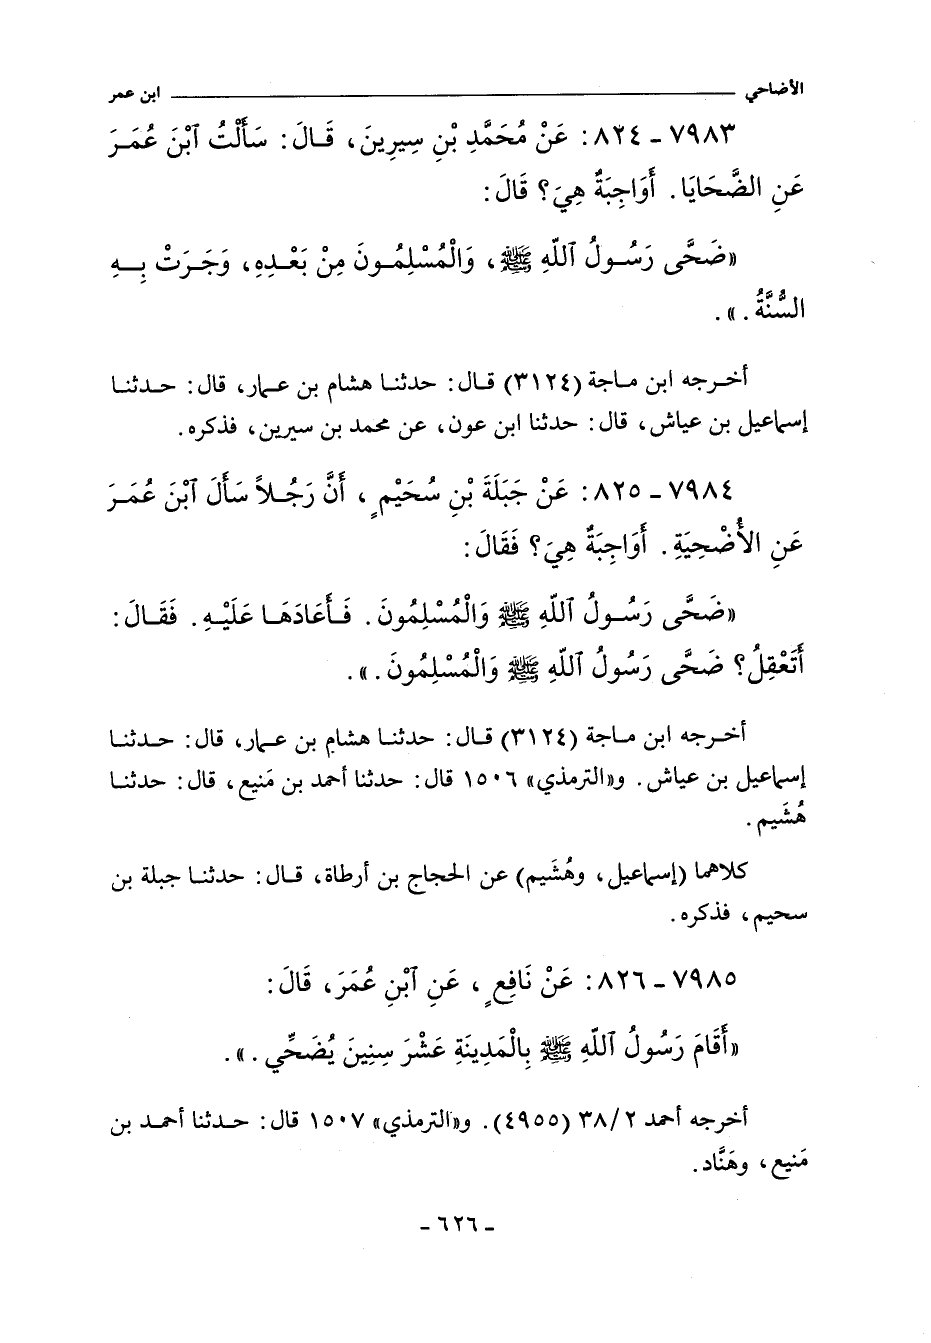 الأضاحي ـــــــــــــ ابن عمر
٧٩٨٣ - ٨٢٤: عَنْ مُحَمَّدِ بْنِ سِيرِينَ، قَالَ: سَأَلْتُ ٱبْنَ عُمَرَ
عَنِ الضَّحَايَا. أَوَاجِبَةٌ هِيَ؟ قَالَ:
«ضَحَّى رَسُولُ ٱللّهِ ﷺ، وَالْمُسْلِمُونَ مِنْ بَعْدِهِ، وَجَرَتْ بِهِ
السُّنَّةُ.».
أخرجه ابن ماجة (٣١٢٤) قال: حدثنا هشام بن عمار، قال: حدثنا
إسماعيل بن عياش، قال: حدثنا ابن عون، عن محمد بن سيرين، فذكره.
٧٩٨٤ - ٨٢٥: عَنْ جَبَلَةَ بْنِ سُحَيْمٍ، أَنَّ رَجُلاً سَأَلَ ٱبْنَ عُمَرَ
عَنِ الأُضْحِيَةِ. أَوَاجِبَةٌ هِيَ؟ فَقَالَ:
«ضَحَّى رَسُولُ ٱللّهِ ﷺ وَالْمُسْلِمُونَ. فَأَعَادَهَا عَلَيْهِ. فَقَالَ:
أَتَعْقِلُ؟ ضَحَّى رَسُولُ ٱللّهِ ﷺ وَالْمُسْلِمُونَ.».
أخرجه ابن ماجة (٣١٢٤) قال: حدثنا هشام بن عمار، قال: حدثنا
إسماعيل بن عياش. و«الترمذي» ١٥٠٦ قال: حدثنا أحمد بن مَنيع، قال: حدثنا
هُشَيم.
كلاهما (إسماعيل، وهُشَيم) عن الحجاج بن أرطاة، قال: حدثنا جبلة بن
سحيم، فذكره.
٧٩٨٥ - ٨٢٦: عَنْ نَافِعٍ، عَنِ ٱبْنِ عُمَرَ، قَالَ:
«أَقَامَ رَسُولُ ٱللّهِ ﷺ بِالْمَدِينَةِ عَشْرَ سِنِينَ يُضَحِّي.».
أخرجه أحمد ٣٨/٢ (٤٩٥٥). و«الترمذي» ١٥٠٧ قال: حدثنا أحمد بن
مَنيع، وهَنَّاد.
- ٦٢٦ -